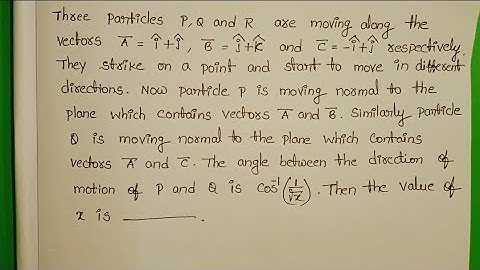 Three particles P, Q and R are moving along the
vectors A̅ = î+ĵ, B̅ = ĵ+k̂ and C̅ = -î+ĵ respectively.
They strike on a point and start to move in different
directions. Now particle P is moving normal to the
plane which contains vectors A̅ and B̅. Similarly particle
Q is moving normal to the plane which contains
vectors A̅ and C̅. The angle between the direction of
motion of P and Q is Cos⁻¹(1/√x). Then the value of
x is ________.